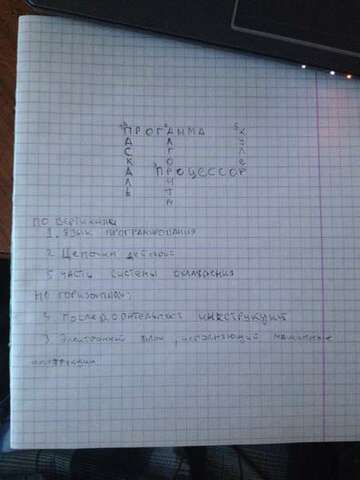 ПРОГАММА
ПАСКАЛЬ
АЛГОЧТА
КУЛЕР
ПРОЦЕССОР
ПО ВЕРТИКАЛИ
1. ЯЗЫК ПРОГРАМИРОВАНИЯ
2. Цепочки действ
5. ЧАСТЬ СИСТЕМЫ ОХЛАЖДЕНИЯ
ПО ГОРИЗОНТАЛИ:
4. Последовательност инкструкций
3. Электронный блок, исполняющий машинные
инструкции